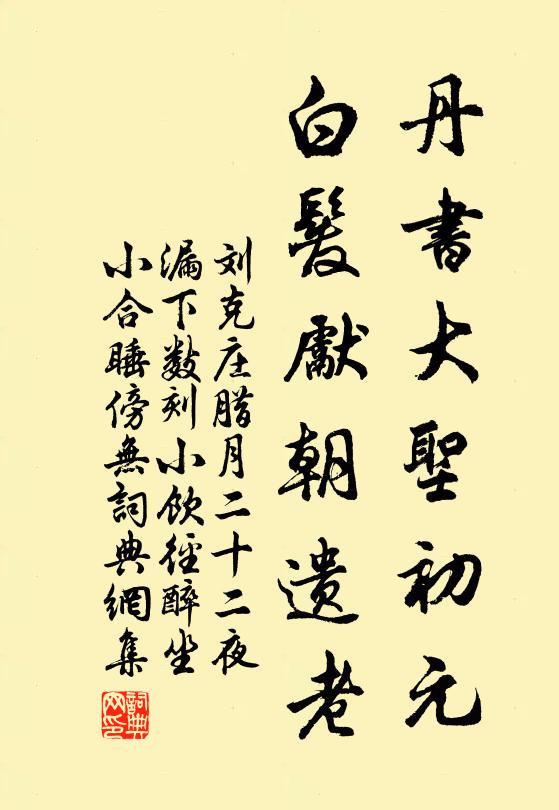 丹書大聖初元
白髮獻朝遺老
刘克庄腊月二十二夜
漏下数刻小飲徑醉坐
小合睡傍無詞典網集
詞典
网印